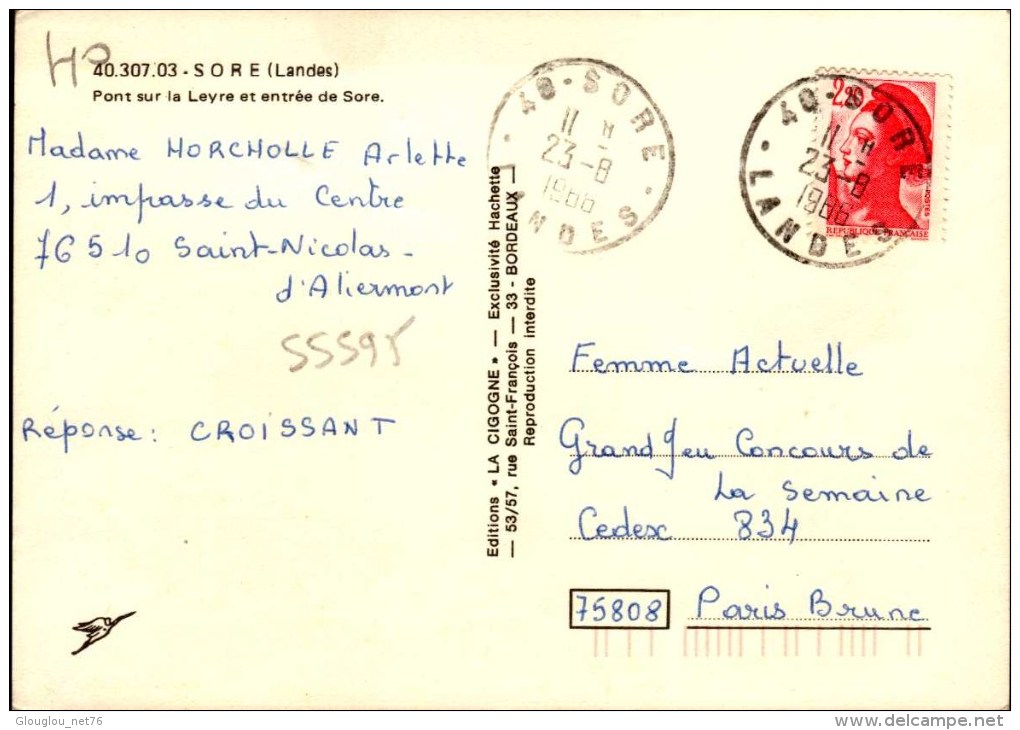 40.307.03 - SORE (Landes)
Pont sur la Leyre et entrée de Sore.
Madame HORCHOLLE Arlette
1, impasse du Centre
76510 Saint-Nicolas-
d'Aliermont
55595
Réponse : CROISSANT
Editions « LA CIGOGNE » — Exclusivité Hachette
— 53/57, rue Saint-François — 33 - BORDEAUX —
Reproduction interdite
40 - SORE
11 H
23-8
1986
LANDES
2,20
REPUBLIQUE FRANÇAISE
40 - SORE
11 H
23-8
1986
LANDES
Femme Actuelle
Grand Jeu Concours de
La Semaine
Cedex 834
75808 Paris Brune
Glouglou_net76
www.delcampe.net